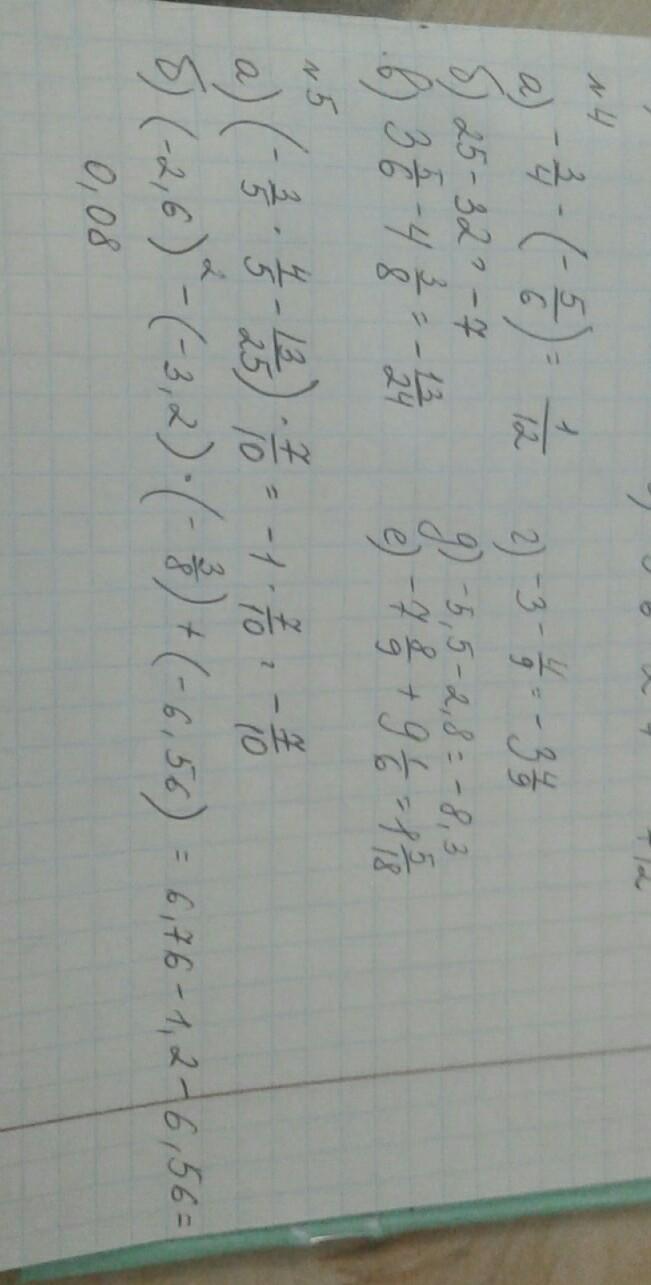 № 4
а) -3/4 - (-5/6) = 1/12 г) -3 - 4/9 = -3 4/9
б) 25 - 32 = -7 д) -5,5 - 2,8 = -8,3
в) 3 5/6 - 4 3/8 = -13/24 е) -7 8/9 + 9 1/6 = 1 5/18
№ 5
а) (-3/5 · 4/5 - 13/25) · 7/10 = -1 · 7/10 = -7/10
б) (-2,6)² - (-3,2) · (-3/8) + (-6,56) = 6,76 - 1,2 - 6,56 =
0,08